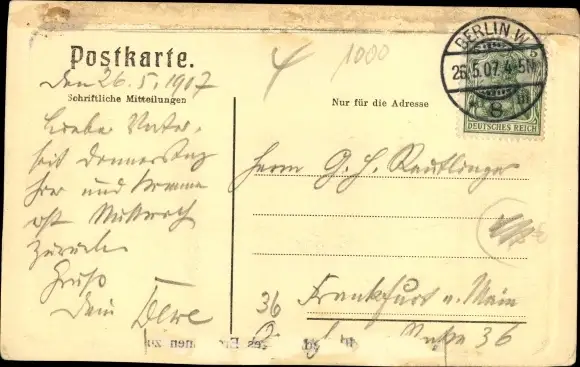 Postkarte.
1000
BERLIN W.
26.5.07. 4-5N
* 8
DEUTSCHES REICH
Den 26. 5. 1907
Schriftliche Mitteilungen
Nur für die Adresse
Lieber Vater,
seit Donnerstag
hier und komme
erst Mittwoch
zurück
Gruß
Dein
Herrn G. H. Reutlinger
Frankfurt a. Main
36
36